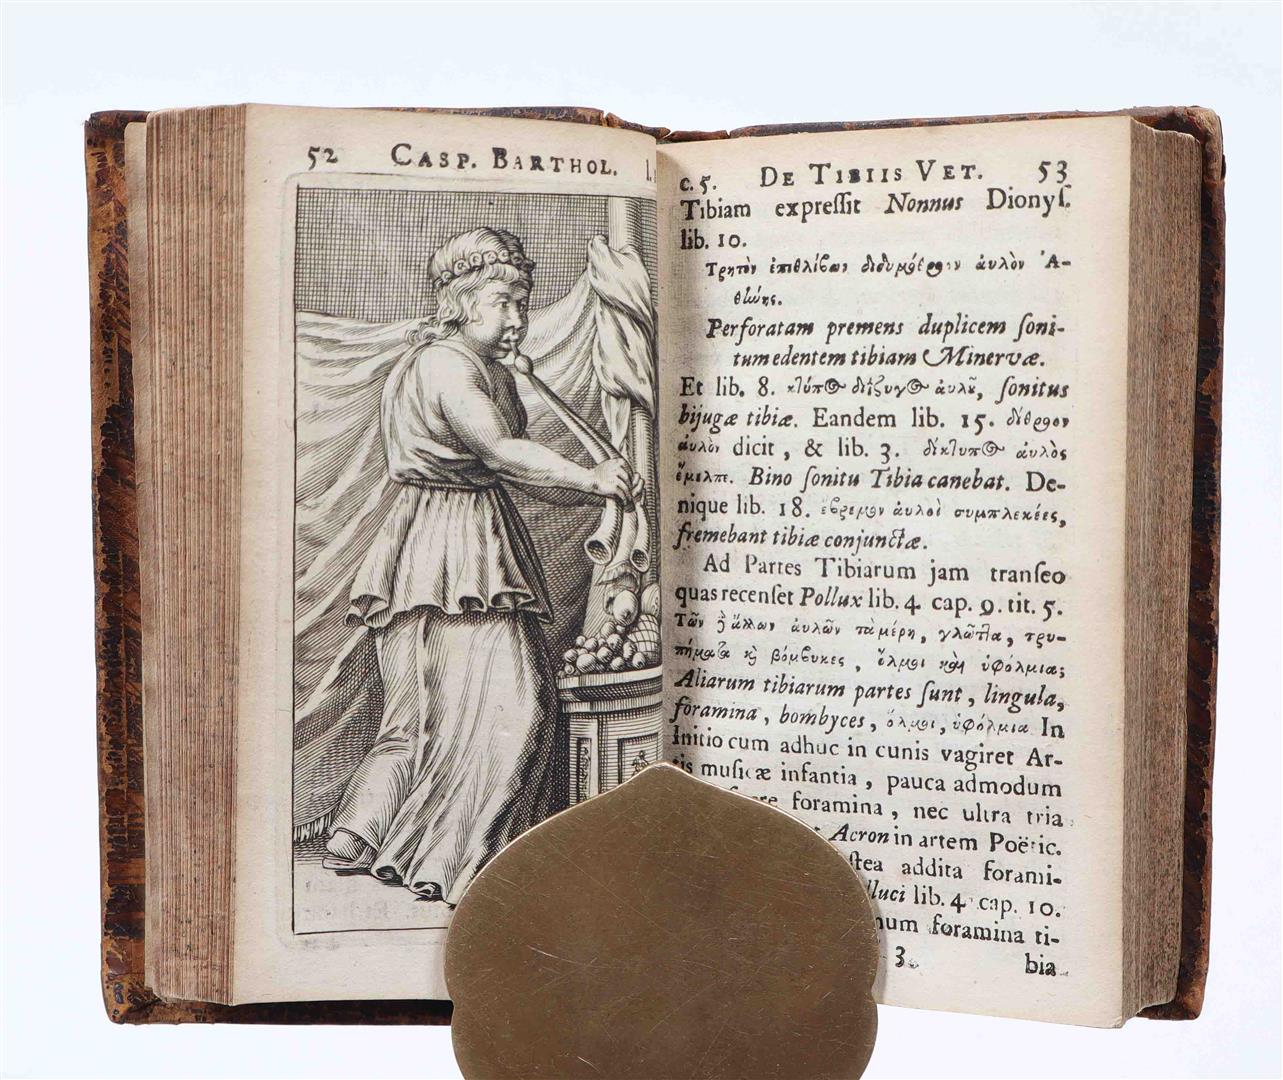 52 CASP. BARTHOL. l.
c. 5. DE TIBIIS VET. 53
Tibiam expreſſit Nonnus Dionyſ.
lib. 10.
Τρητὸν ἐπιθλίβων διδυμόθροον αὐλὸν Ἀ-
θήνης.
Perforatam premens duplicem ſoni-
tum edentem tibiam Minervæ.
Et lib. 8. κτύπος δίζυγος αὐλῦ, ſonitus
bijugæ tibiæ. Eandem lib. 15. δίθροον
αὐλὸν dicit, & lib. 3. δίκτυπος αὐλὸς
ἔμελπε. Bino ſonitu Tibia canebat. De-
nique lib. 18. αὐλοὶ συμπλεκέες,
fremebant tibiæ conjunctæ.
Ad Partes Tibiarum jam tranſeo
quas recenſet Pollux lib. 4. cap. 9. tit. 5.
Τῶν ἄλλων αὐλῶν τὰ μέρη, γλῶττα, τρυ-
πήματα καὶ βόμβυκες, ὅλμοι καὶ ὑφόλμια;
Aliarum tibiarum partes ſunt, lingula,
foramina, bombyces, ὅλμοι, ὑφόλμια In
Initio cum adhuc in cunis vagiret Ar-
tis muſicæ infantia, pauca admodum
foramina, nec ultra tria
Acron in artem Poëtic.
addita forami-
lib. 4. cap. 10.
foramina ti-
3 bia